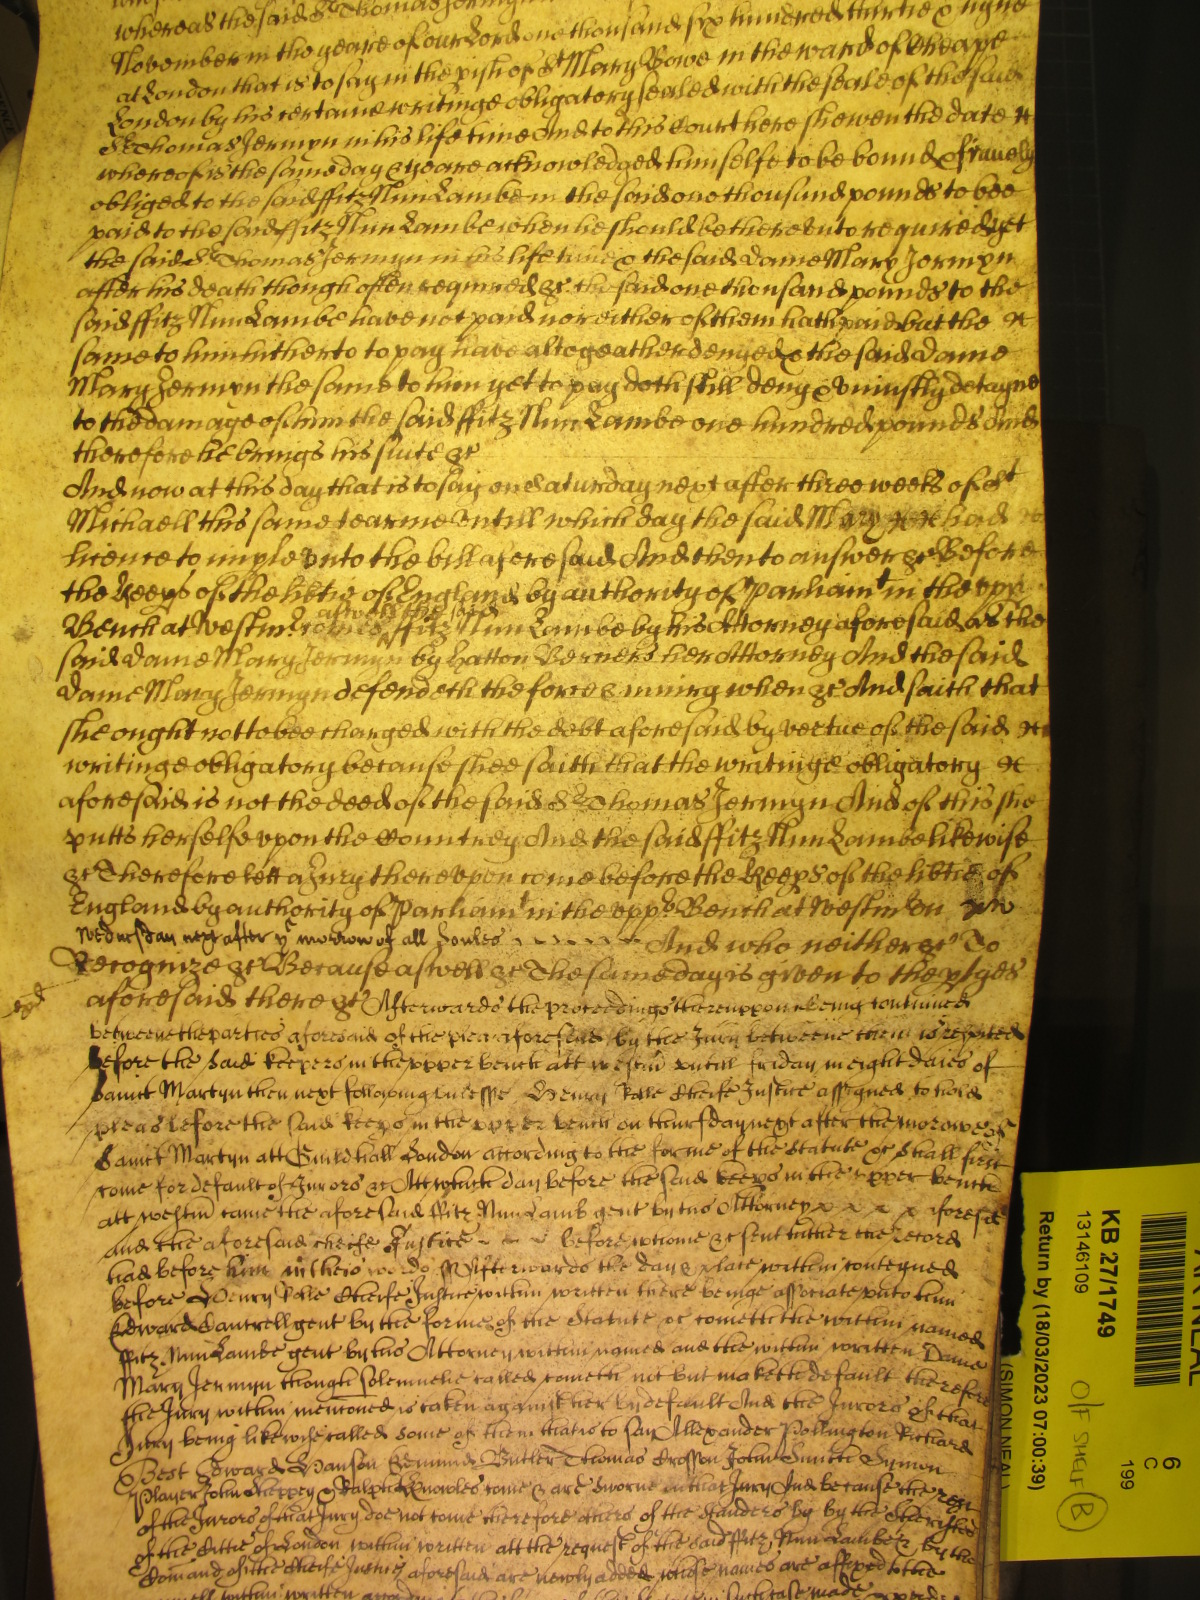 whereas the said Sr Thomas Jermyn
November in the yeare of our Lord one thousand six hundred thirtie & nyne
at London that is to say in the pish of St Mary Bowe in the ward of Cheape
London by his certaine writinge obligatory sealed with the seale of the said
Sr Thomas Jermyn in his life time And to this Court here shewen the date
whereof is the same day & yeare acknowledged himselfe to be bound &
obliged to the said ffitz Nun Lambe in the said one thousand pounds to bee
paid to the said ffitz Nun Lambe when he should be thereunto required yet
the said Sr Thomas Jermyn in his life time & the said Dame Mary Jermyn
after his death though often required &c the said one thousand pounds to the
said ffitz Nun Lambe have not paid nor either of them hath paid but the
same to him hitherto to pay have altogeather denyed & the said Dame
Mary Jermyn the same to him yet to pay doth still deny & uniustly detayne
to the damage of him the said ffitz Nun Lambe one hundred pounds And
therefore he brings his suite &c
And now at this day that is to say on Saturday next after three weeks of St
Michaell this same tearme Untill which day the said Mary had
licence to imple vnto the bill aforesaid And then to answer &c Before
the Keeps of the libtie of England by authority of Parliamt in the vpp
Bench at Westmr ffitz Nun Lambe by his Attorney aforesaid as the
said Dame Mary Jermyn by Hatton Berners her Attorney And the said
Dame Mary Jermyn defendeth the force & iniury when &c And saith that
she ought not to bee charged with the debt aforesaid by vertue of the said
writinge obligatory because shee saith that the writinge obligatory
aforesaid is not the deed of the said Sr Thomas Jermyn And of this she
putts herselfe vpon the Countrey And the said ffitz Nun Lambe likewise
&c Therefore lett a Jury therevpon come before the Keeps of the libtie of
England by authority of Parliamt in the vpp Bench at Westm on
Wednesday next after ye morrow of all Soules And who neither &c To
Recognize &c Because aswell &c The same day is given to the ptyes
aforesaid there &c Afterwards the proceedings thereuppon being continued
betweene the parties aforesaid of the plea aforesaid by the Jury betweene them is respited
before the said keepers in the vpper bench att westm vntill friday in eight daies of
Saint Martyn then next following unlesse Henry Rolle Cheife Justice assigned to hold
pleas before the said keeps in the vpper bench on thursday next after the morowe of
Sainct Martyn att Guildhall London according to the forme of the Statute &c shall first
come for default of Jurors &c Att which day before the said keeps in the vpper bench
att westm came the aforesaid ffitz Nun Lamb gent by his Attorney aforesd
and the aforesaid cheife Justice before whome &c sent hither the record
had before him in theis words Afterwards the day & place within conteyned
before Henry Rolle Cheife Justice within written there beinge associate unto him
Edward Cantrell gent by the forme of the Statute &c cometh the within named
ffitz Nun Lambe gent by his Attorney within named and the within written Dame
Mary Jermyn though solemnelie called cometh not but maketh default therefore
the Jury within mentioned is taken against her by default And the Jurors of that
Jury being likewise called some of them that is to say Allexander Pollington Richard
Best Edward Hanson Edmund Butler Thomas Crosson John Symon
Player John Sheppey & Ralph Knowles come & are sworne on that Jury And because the rest
of the Jurors of that Jury doe not come therefore others of the Standers by by the Sheriffes
of the Cittie of London within written att the request of the said ffitz Nun Lambe & by the
Comand of the Cheife Justice aforesaid are newly added whose names are affixed to the
within written
KB 27/1749
13146109
Return by (18/03/2023 07:00:39)
(SIMON NEAL)
O/F SHELF B
6
C
199